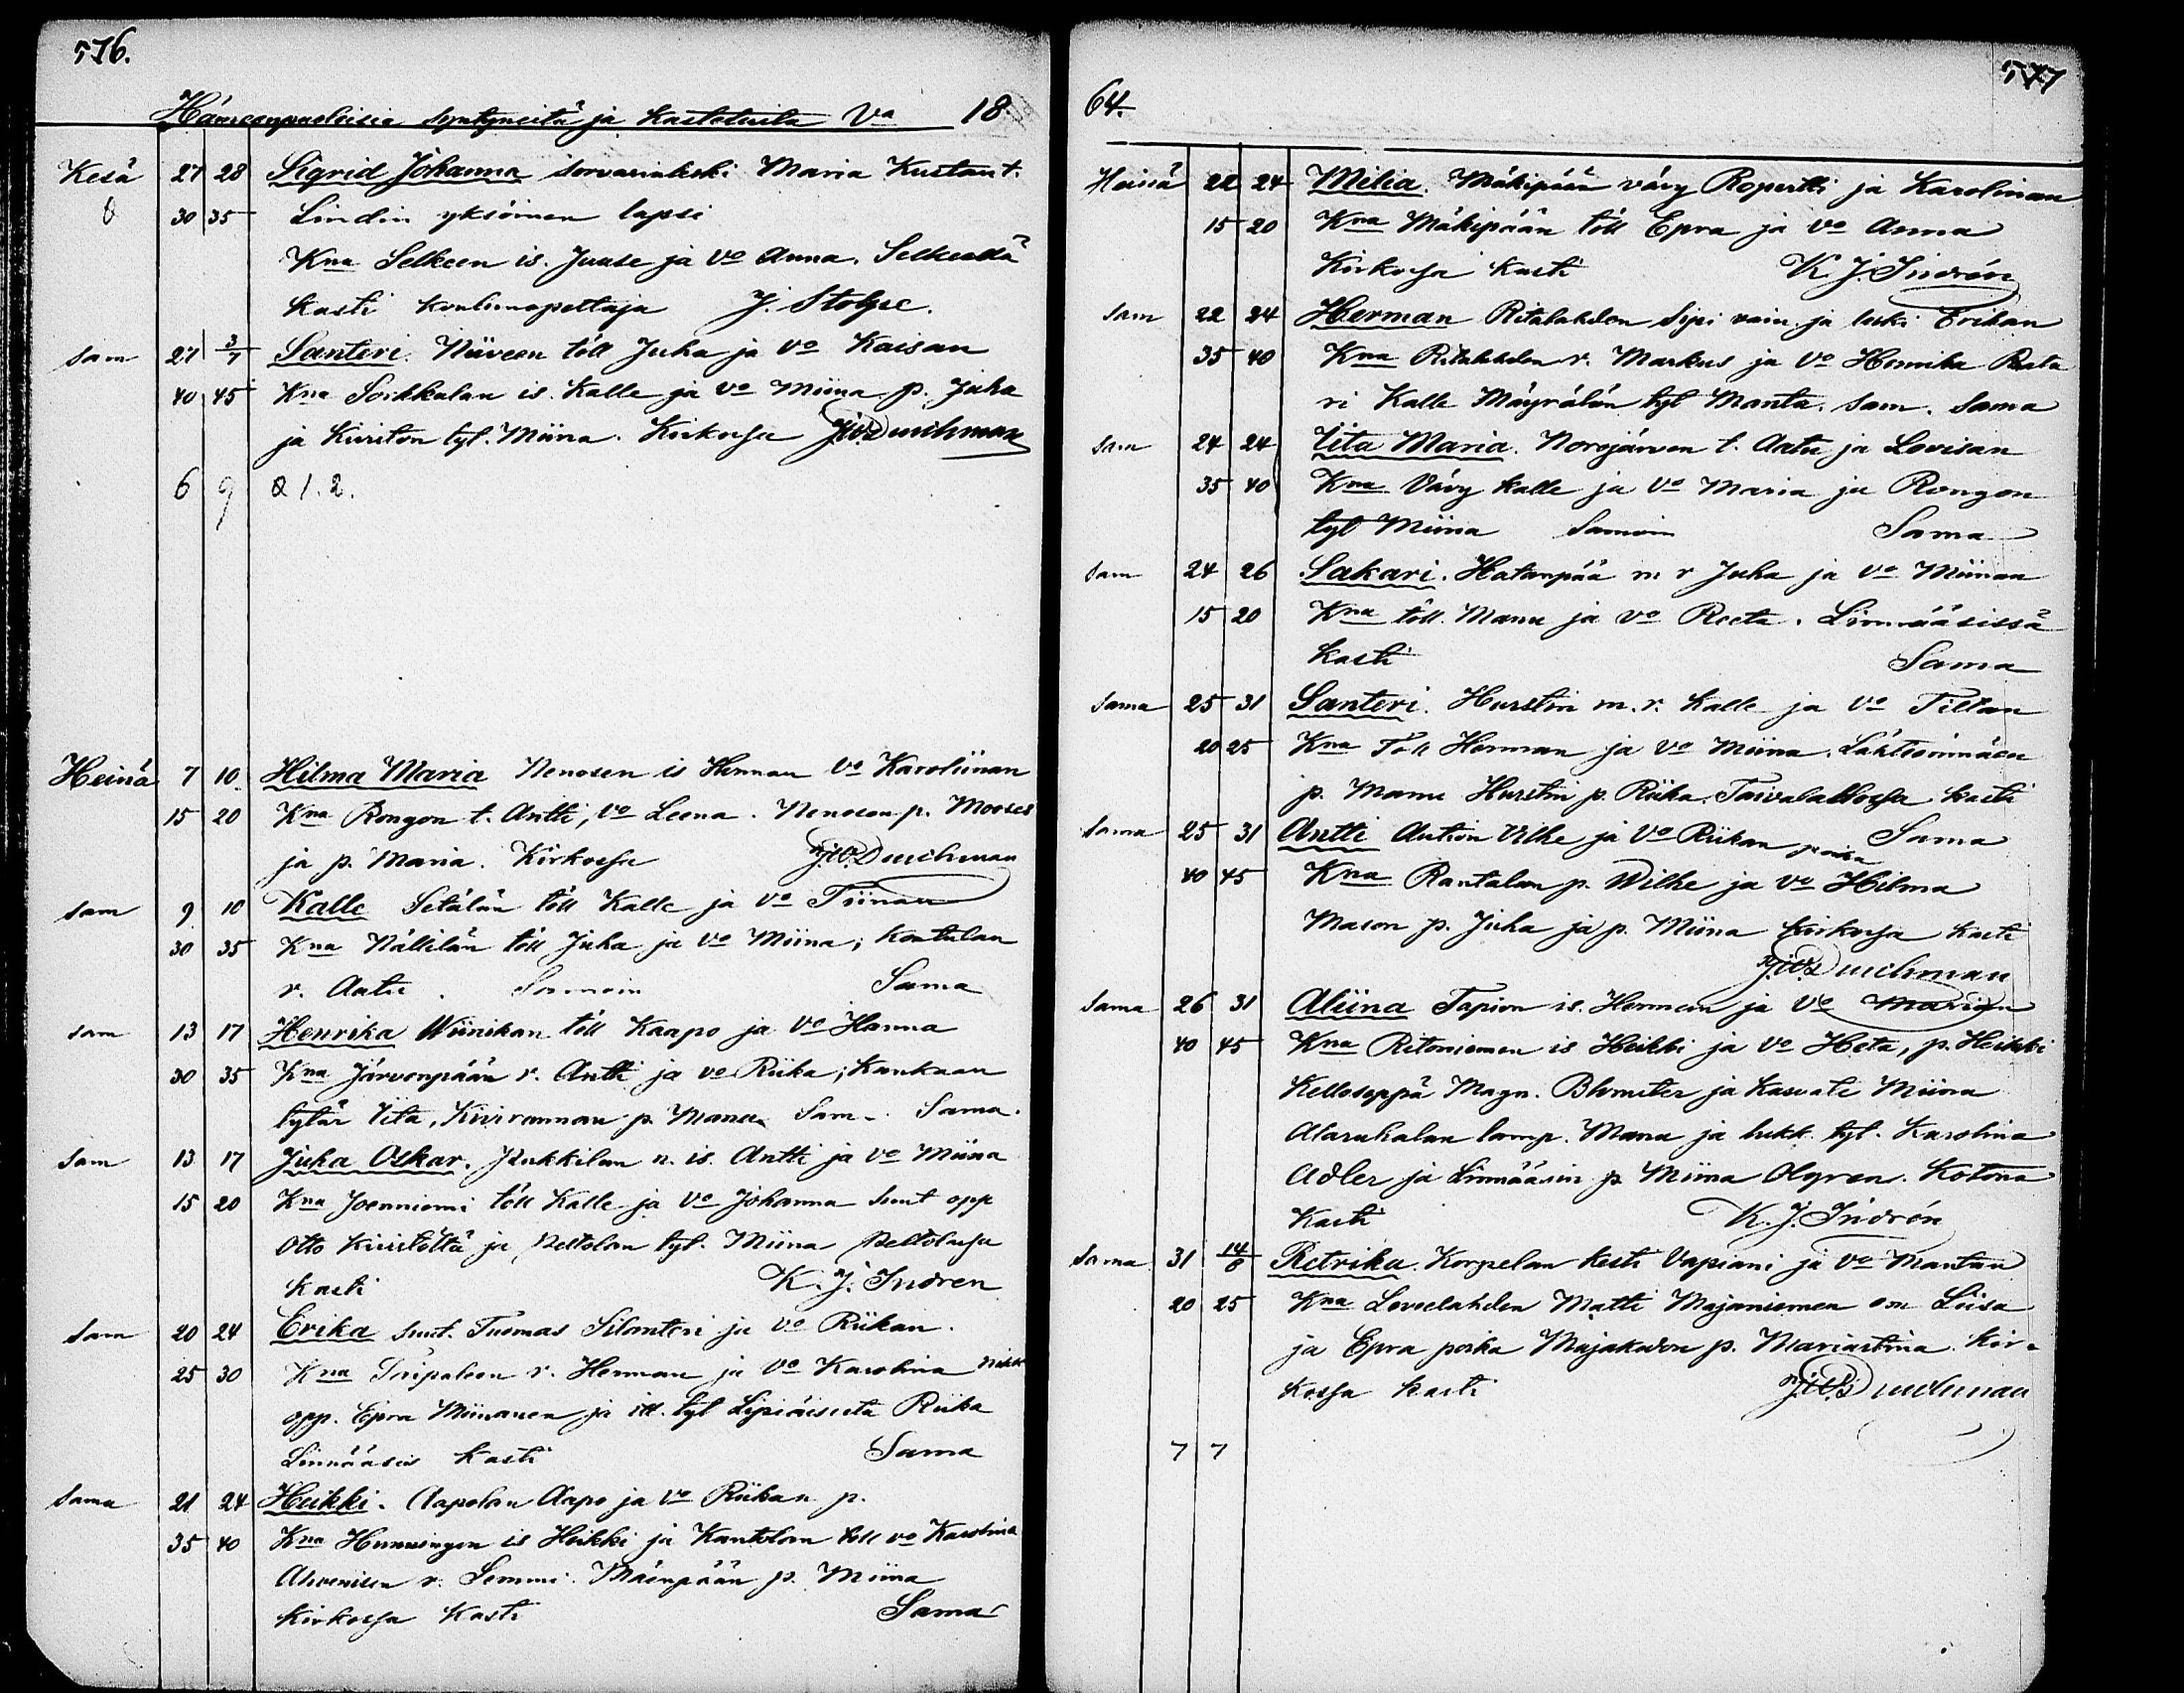 576.
Hämeenpuoleisia syntyneitä ja kastetuita Va 18
Kesä 27 28 Sigrid Johanna Maria Kustaant.
30 35 Lindin yksöinen lapsi
Kna Selkeen is. Juuse ja Vo Anna. Selkeellä
kasti koulunopettaja J. Stolpe.
sam 27 3/7 Santeri. Niiveen töll Juha ja Vo Kaisan
40 45 Kna Soikkalan is. Kalle ja vo Miina p. Juha
ja Kiviston tyt. Miina. Kirkossa
6 9 Q 1. 2.
Heinä 7 10 Hilma Maria Nenosen is Herman Vo Karoliinan
15 20 Kna Rongon t. Antti, Vo Leena. Nenosen p. Mooses
ja p. Maria. Kirkossa
sam 9 10 Kalle Setälän töll Kalle ja Vo Tiinan
30 35 Kna Nällilän töll Juha ja Vo Miina; Kontulan
r. Aatu. Samoin Sama
sam 13 17 Henrika Wiinikan töll Kaapo ja Vo Hanna
30 35 Kna Järvenpään r. Antti ja vo Riika; Kankaan
tytär Iita, Kivirannan p. Manu Sam. Sama.
Sam 13 17 Juha Oskar. Pukkilan n. is. Antti ja Vo Miina
15 20 Kna Joenniemi töll Kalle ja Vo Johanna Suut opp
Otto Kivistöltä ja Peltolan tyt. Miina Peltolassa
kasti K. J. Indren
Sam 20 24 Erika suut. Tuomas Silanteri ja Vo Riikan.
25 30 Kna r. Herman ja Vo Karolina nikk
opp. Epra Miinanen ja itt. tyt Lipiäisistä Riika
Linnääsis kasti Sama
Sama 21 24 Heikki. Aapolan Aapo ja Vo Riikan p.
35 40 Kna Hunningon is Heikki ja Kantolan töll vo Karolina
Ahvenisen r. Semmi. Mäenpään p. Miina
Kirkossa Kasti Sama
577
64.
Heinä 22 24 Milia. Mäkipään vävy Ropertti ja Karolinan
15 20 Kna Mäkipään töll Epra ja Vo Anna
Kirkossa kasti K. J. Indrén
Sam 22 24 Herman Ritalahden Sipi vain. ja leski Erikan
35 40 Kna Ritalahden r. Markus ja Vo Henrika
ri Kalle Mäyrälän tyt Manta. Sam. Sama
Sam 24 24 Iita Maria. Norojärven t. Aatu ja Lovisan
35 40 Kna Vävy Kalle ja Vo Maria ja Rongon
tyt Miina Samoin Sama
Sam 24 26 Sakari. Hatanpää m r Juha ja Vo Miinan
15 20 Kna töll. Manu ja Vo Reeta. Linnääsissä
kasti Sama
Sama 25 31 Santeri. Hurstin m. r. Kalle ja Vo Tiltan
20 25 Kna Töll Herman ja Vo Miina. Lähteenmäen
p. Manu Hurstin p. Riika. Taivalallossa kasti
Sama 25 31 Antti Aution Vilhe ja Vo Riikan poika Sama
40 45 Kna Rantalan p. Wilhe ja Vo Hilma
Mason p. Juha ja p. Miina kirkossa kasti
Sama 26 31 Aliina Tapion is. Herman ja Vo Marian
40 45 Kna Ritoniemen is Heikki ja Vo Heta, p. Heikki
Kelloseppä Magn. ja kasvatti Miina
Alasuhalan lamp. Manu ja lukk. tyt. Karolina
Adler ja Linnääsin p. Miina Olgren. Kotona
Kasti K. J. Indrén
Sama 31 14/8 Retrika. Korpelan Kesti Vapiani ja Vo Mantan
20 25 Kna Matti Majaniemen em Liisa
ja Epra poika Majakadon p. Mariastina. Kir-
kossa kasti
7 7